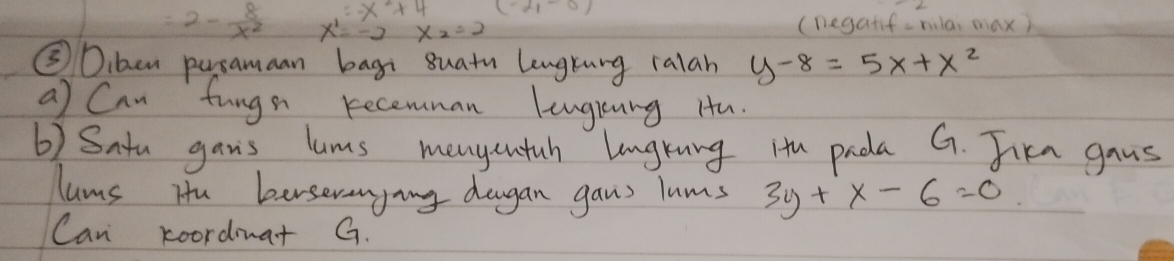 = 2 - 8/x² = -x² + 4
x₁ = -2 x₂ = 2 (negatif = nilai max)
③ Diberi persamaan bagi suatu lengkung ialah y-8 = 5x+x²
a) Cari fungsi kecerunan lengkung itu.
b) Satu garis lurus menyentuh lengkung itu pada G. Jika garis
lurus itu berserenjang dengan garis lurus 3y + x - 6 = 0.
Cari koordinat G.